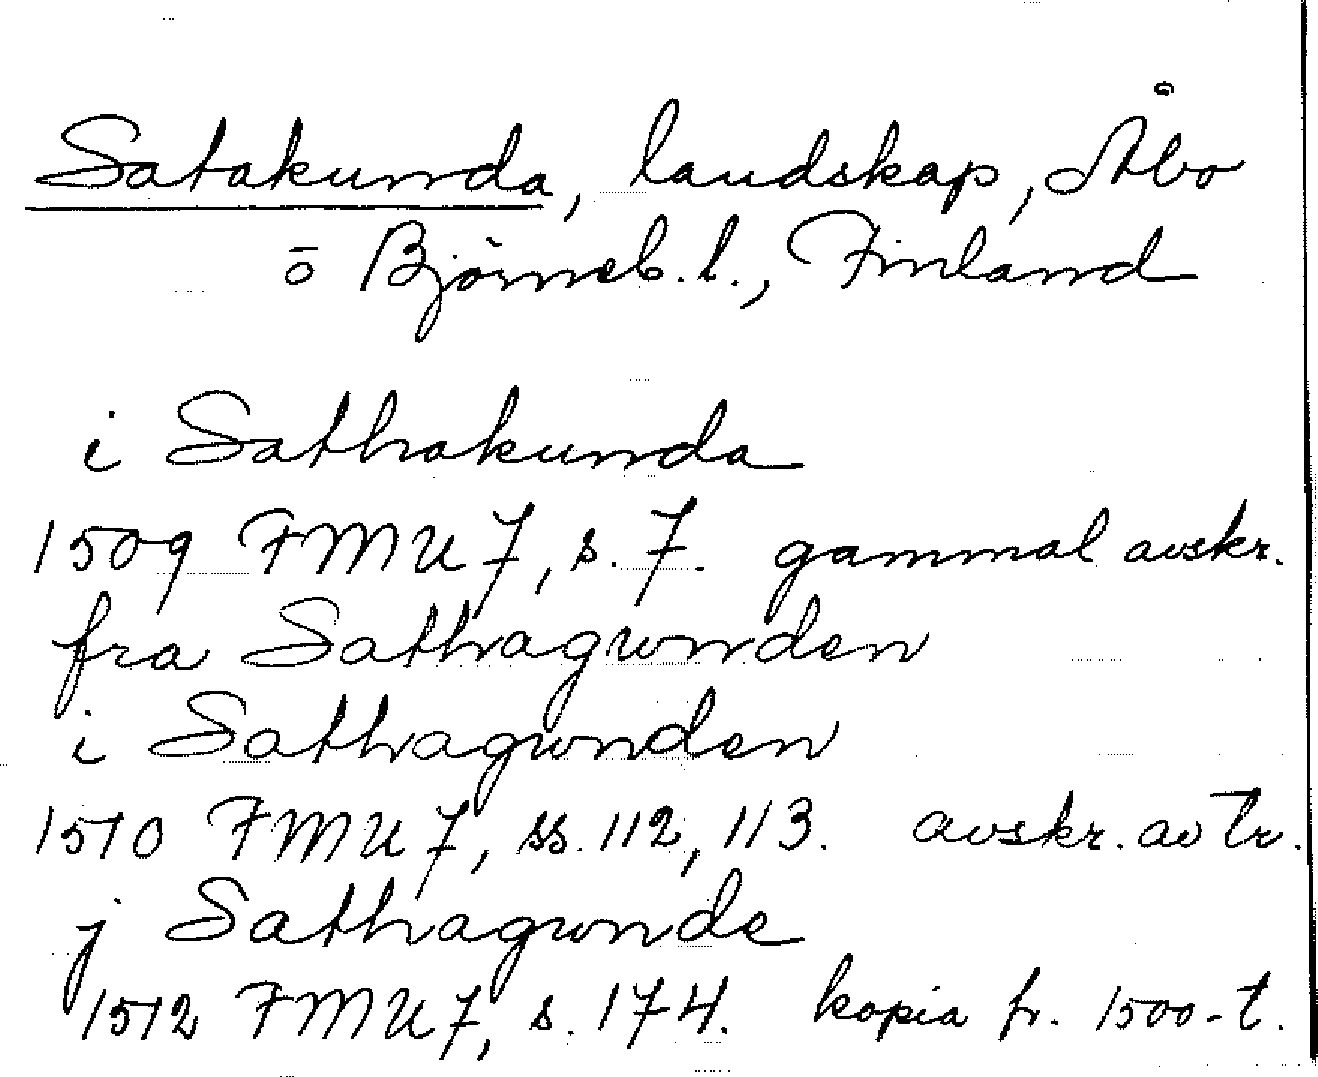 Satakunda, landskap, Åbo
o Björneb.l., Finland
i Sathakunda
1509 FMU 7, s. 7. gammal avskr.
fra Sathagwnden
i Sathagwnden
1510 FMU 7, ss. 112, 113. avskr. av Tr.
j Sathagwnde
1512 FMU 7, s. 174. kopia fr. 1500-t.